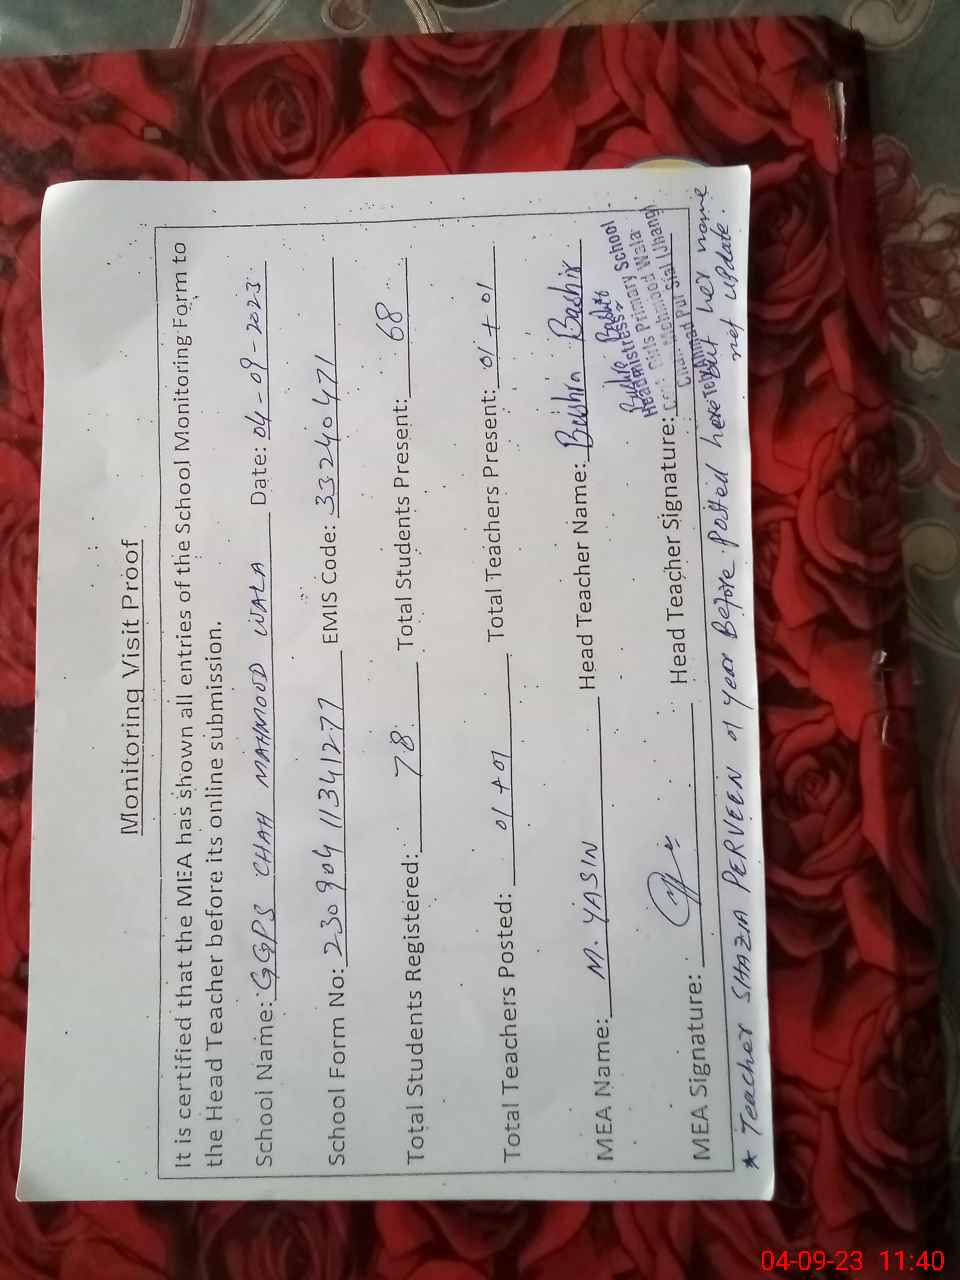 Monitoring Visit Proof
It is certified that the MEA has shown all entries of the School Monitoring Form to
the Head Teacher before its online submission.
School Name: GGPS CHAH MAHMOOD WALA Date: 04-09-2023
School Form No: 230904 11341277 EMIS Code: 33240471
Total Students Registered: 78 Total Students Present: 68
Total Teachers Posted: 01+01 Total Teachers Present: 01+01
MEA Name: M. YASIN Head Teacher Name: Bushra Bashir
MEA Signature: Head Teacher Signature:
Headmistress
Girls Primary School
Chah Mehmood Wala
Sial (Jhang)
* Teacher SHAZIA PERVEEN 01 year Before Posted here but her name
not update.
04-09-23 11:40